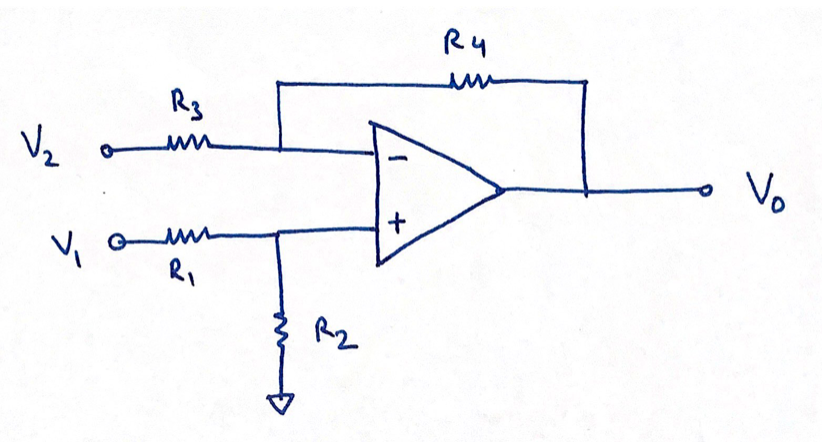 R4
R3
V2
−
V0
+
V1
R1
R2